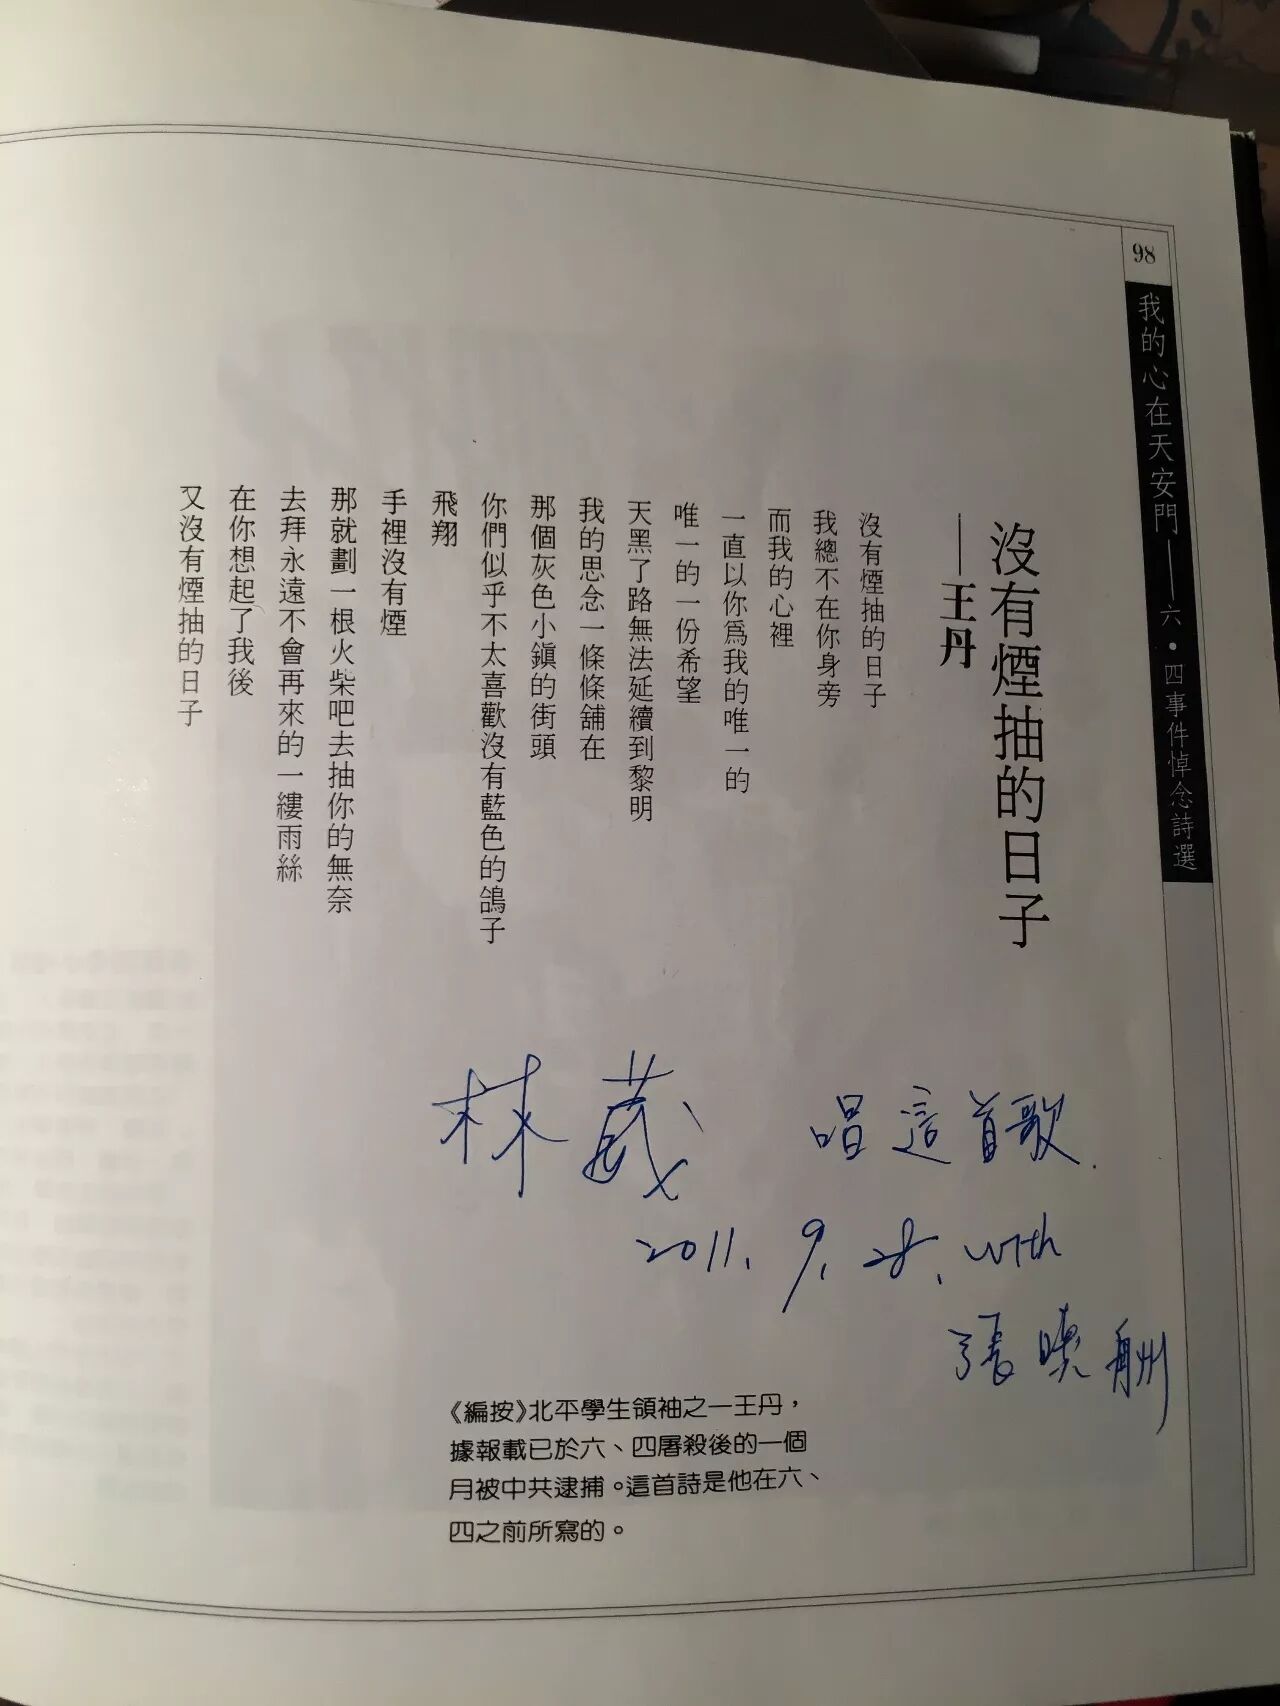 98
我的心在天安門——六·四事件悼念詩選
沒有煙抽的日子
——王丹
沒有煙抽的日子
我總不在你身旁
而我的心裡
一直以你爲我的唯一的
唯一的一份希望
天黑了路無法延續到黎明
我的思念一條條舖在
那個灰色小鎭的街頭
你們似乎不太喜歡沒有藍色的鴿子
飛翔
手裡沒有煙
那就劃一根火柴吧去抽你的無奈
去拜永遠不會再來的一縷雨絲
在你想起了我後
又沒有煙抽的日子
林 唱這首歌.
2011. 9. 28. with
張
《編按》北平學生領袖之一王丹，
據報載已於六、四屠殺後的一個
月被中共逮捕。這首詩是他在六、
四之前所寫的。